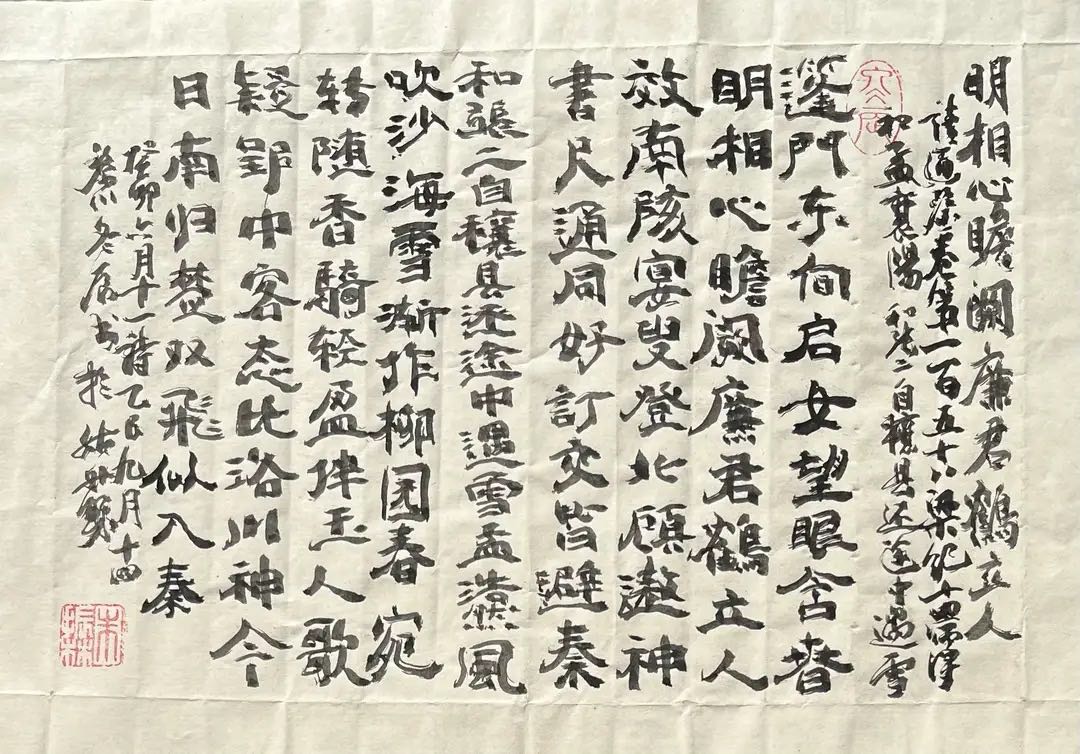 明相心瞻阙廉君鹤立人
读通鉴卷第一百五十八梁纪十四
和孟襄陽和张二自穰县还途中遇雪
篷門东向启女望眼含春
明相心瞻阙廉君鹤立人
效南陔宴叟登北顾邀神
書尺通同好訂交皆避秦
和張二自穰县还途中遇雪孟浩然風
吹沙海雪渐作柳园春宛
转随香騎轻盈伴玉人歌
疑郢中客态比洛川神今
日南归楚双飛似入秦
癸卯六月十一詩乙巳九月十四
冬辰书於